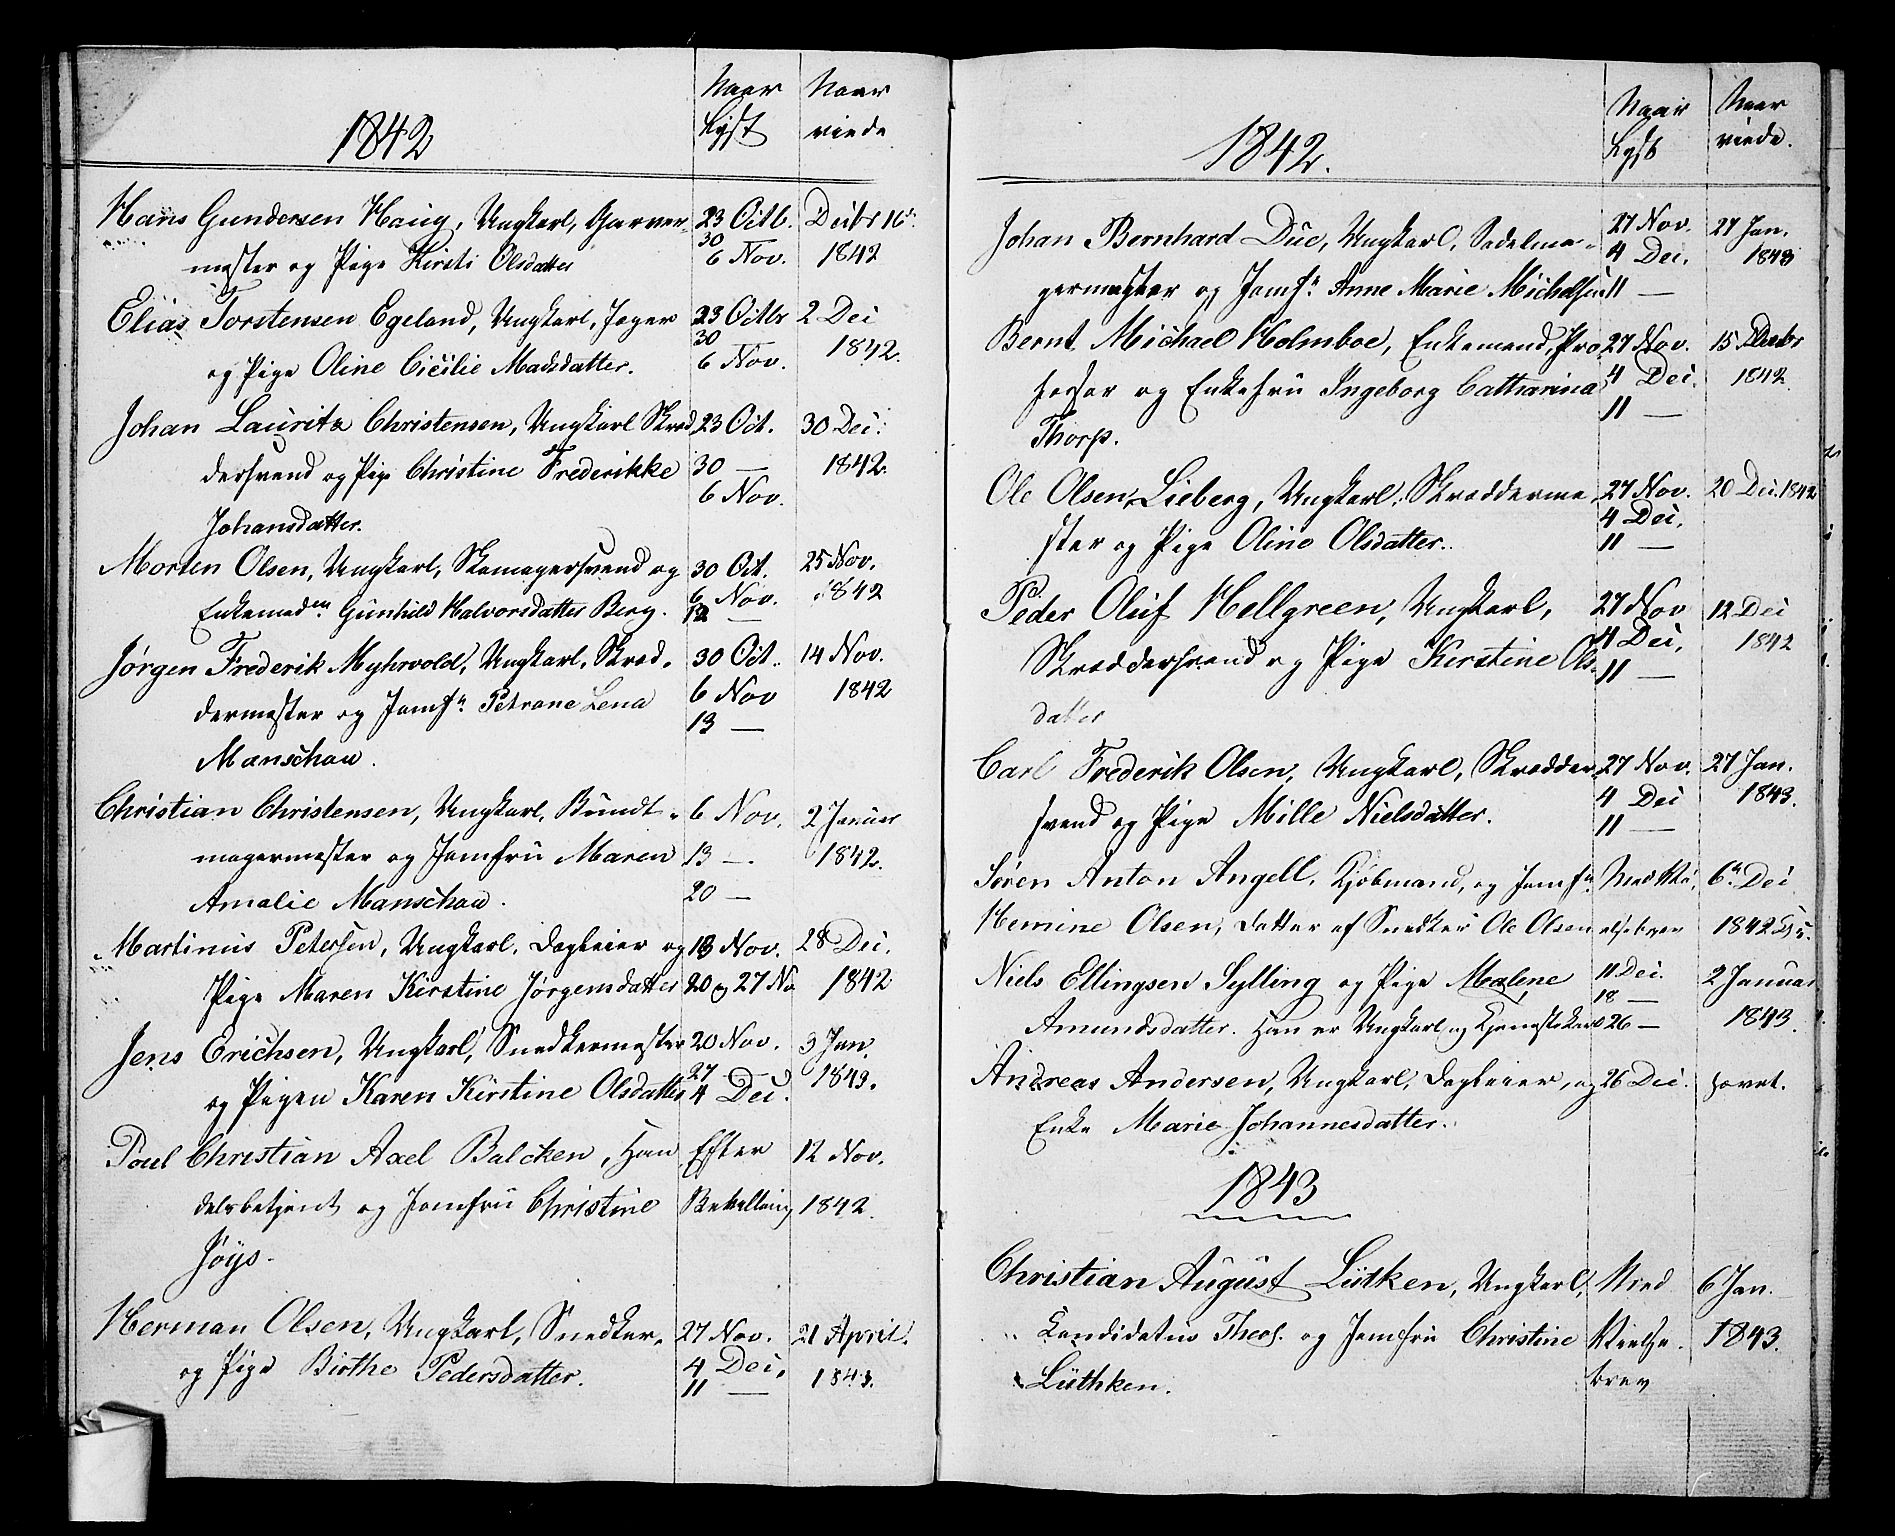 Naar Naar
1842 Lyst viede
Hans Gundersen Haug, Ungkarl, Garver- 23 Octb. Decbr 16
30
mester og Pige Kirsti Olsdatter 6 Nov. 1842
Elias Torstensen Egeland, Ungkarl, Jæger 23 Octbr 2 Dec
30
og Pige Oline Cicilie Madsdatter. 6 Nov. 1842.
Johan Lauritz Christensen, Ungkarl Skræd 23 Oct. 30 Dec.
dersvend og Pige Christine Frederikke 30 — 1842.
6 Nov.
Johansdatter.
Morten Olsen, Ungkarl, Skomagersvend og 30 Oct. 25 Nov.
6 Nov. 1842
Enkemadm Gunhild Halvorsdatter Berg. 13 —
Jørgen Frederik Myhrvold, Ungkarl, Skræd- 30 Oct. 14 Nov.
dermester og Jomfr Petrane Lena 6 Nov 1842
13 —
Manschau.
Christian Christensen, Ungkarl, Bundt- 6 Nov. 2 Januar
magermester og Jomfru Maren 13 —. 1842.
Amalie Manschau. 20 —
Martinus Petersen, Ungkarl, Dagleier og 13 Nov. 28 Dec.
Pige Maren Kirstine Jørgensdatter 20 og 27 No 1842
Jens Erichsen, Ungkarl, Snedkermester 20 Nov. 3 Jan.
27
og Pigen Karen Kirstine Olsdatter 4 Dec. 1843.
Poul Christian Axel Balcken, Han Efter 12 Nov.
delsbetjent og Jomfru Christine Bevilling 1842.
Jøys.
Herman Olsen, Ungkarl, Snedker, 27 Nov. 21 April.
og Pige Birthe Pedersdatter. 4 Dec. 1843.
11 —
Naar Naar
1842. Lyst viede.
Johan Bernhard Due, Ungkarl, Sadelma- 27 Nov. 27 Jan.
4 Dec. 1843
germester og Jomfr. Anne Marie Michelsen 11 —
Bernt Michael Holmboe, Enkemand, Pro 27 Nov. 15 Decbr
fessor og Enkefru Ingeborg Catharina 4 Dec. 1842
11 —
Thorp.
Ole Olsen Lieberg, Ungkarl, Skrædderme 27 Nov. 20 Dec. 1842
4 Dec.
ster og Pige Oline Olsdatter. 11 —
Peder Oluf Hellgreen, Ungkarl, 27 Nov 12 Dec
4 Dec, 1842
Skræddersvend og Pige Kirstine Ols- 11 —
datter
Carl Frederik Olsen, Ungkarl, Skrædder 27 Nov. 27 Jan.
4 Dec 1843.
svend og Pige Mille Nielsdatter. 11 —
Søren Anton Angell, Kjøbmand, og Jomfr 6 Dec
Hemine Olsen, Datter af Snedker Ole Olsen elsebrev 1842
Niels Ellingsen Sylling og Pige Malene 11 Dec. 2 Januar
18 —
Amundsdatter. Han er Ungkarl og Tjenestekarl 26 — 1843.
Andreas Andersen, Ungkarl, Dagleier, og 26 Dec.
Enke Marie Johannesdatter.
1843
Christian August Lütken, Ungkarl, Med 6 Jan.
Candidatus Theol. og Jomfru Christine Vielse 1843.
Lüthken. brev